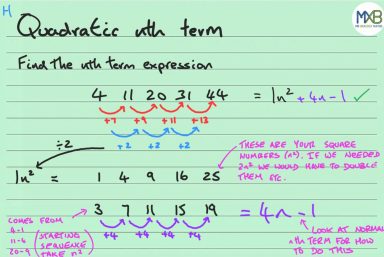 H
Quadratic nth term
MXB
Find the nth term expression
4 11 20 31 44 = 1n² + 4n - 1 ✓
+7 +9 +11 +13
÷2 +2 +2 +2
THESE ARE YOUR SQUARE
NUMBERS (n²). IF WE NEEDED
2n² WE WOULD HAVE TO DOUBLE
THEM ETC.
1n² = 1 4 9 16 25
3 7 11 15 19 = 4n - 1
+4 +4 +4 +4
COMES FROM
4-1
11-4
20-9
(STARTING
SEQUENCE
TAKE n²
LOOK AT NORMAL
nth TERM FOR HOW
TO DO THIS